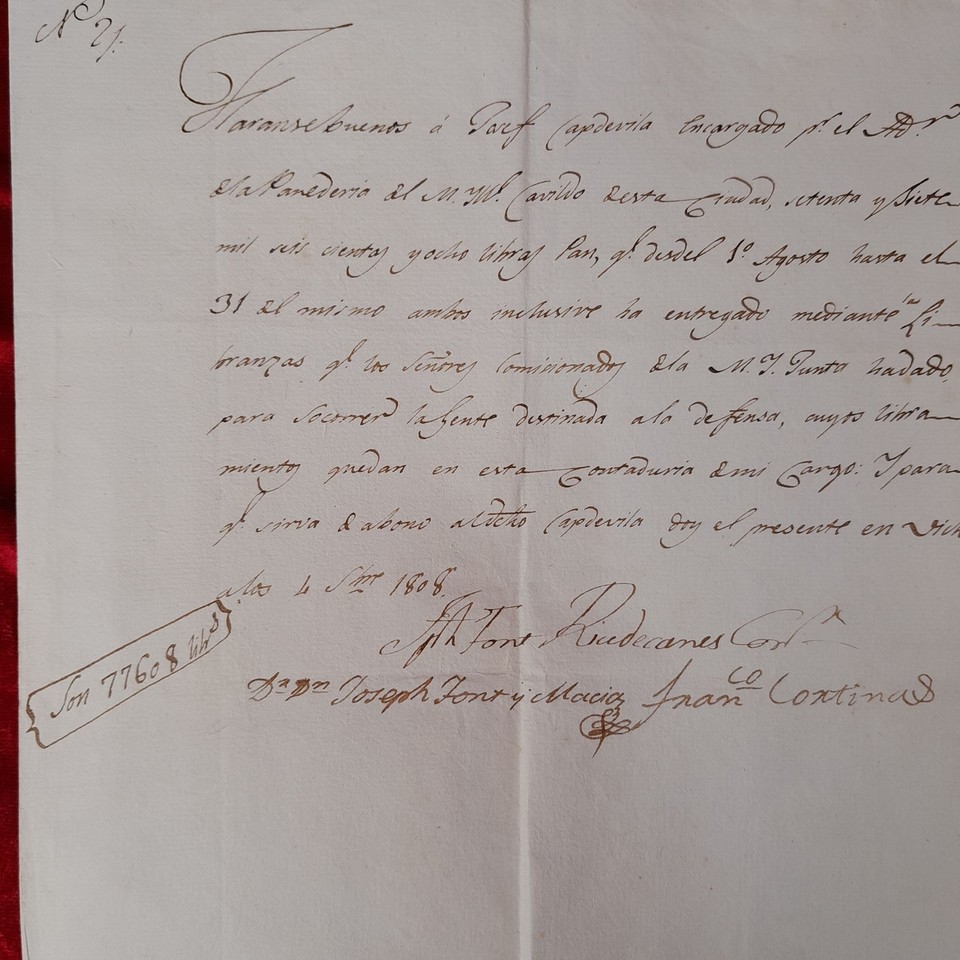 Nº 21.
Haranse buenos á Josef Capdevila Encargado pr. el Adr.
de la Panederia del M. Yll. Cavildo de esta Ciudad, setenta y Siete
mil seis cientas y ocho libras Pan, q.e desdel 1º Agosto hasta el
31 del mismo ambos inclusive ha entregado mediante Li-
branzas q.e los Señores Comicionados de la M. I. Junta hadado,
para Socorrer la Gente destinada a la defensa, cuyos libra-
mientos quedan en esta Contaduria de mi Cargo: Y para
q.e sirva de abono al dcho Capdevila doy el presente en Vich
a los 4 Sbre 1808.
Son 77608 libs
Font Riudecanes Cor
Dn. Dn Joseph Font y Macia Franco Cortinas